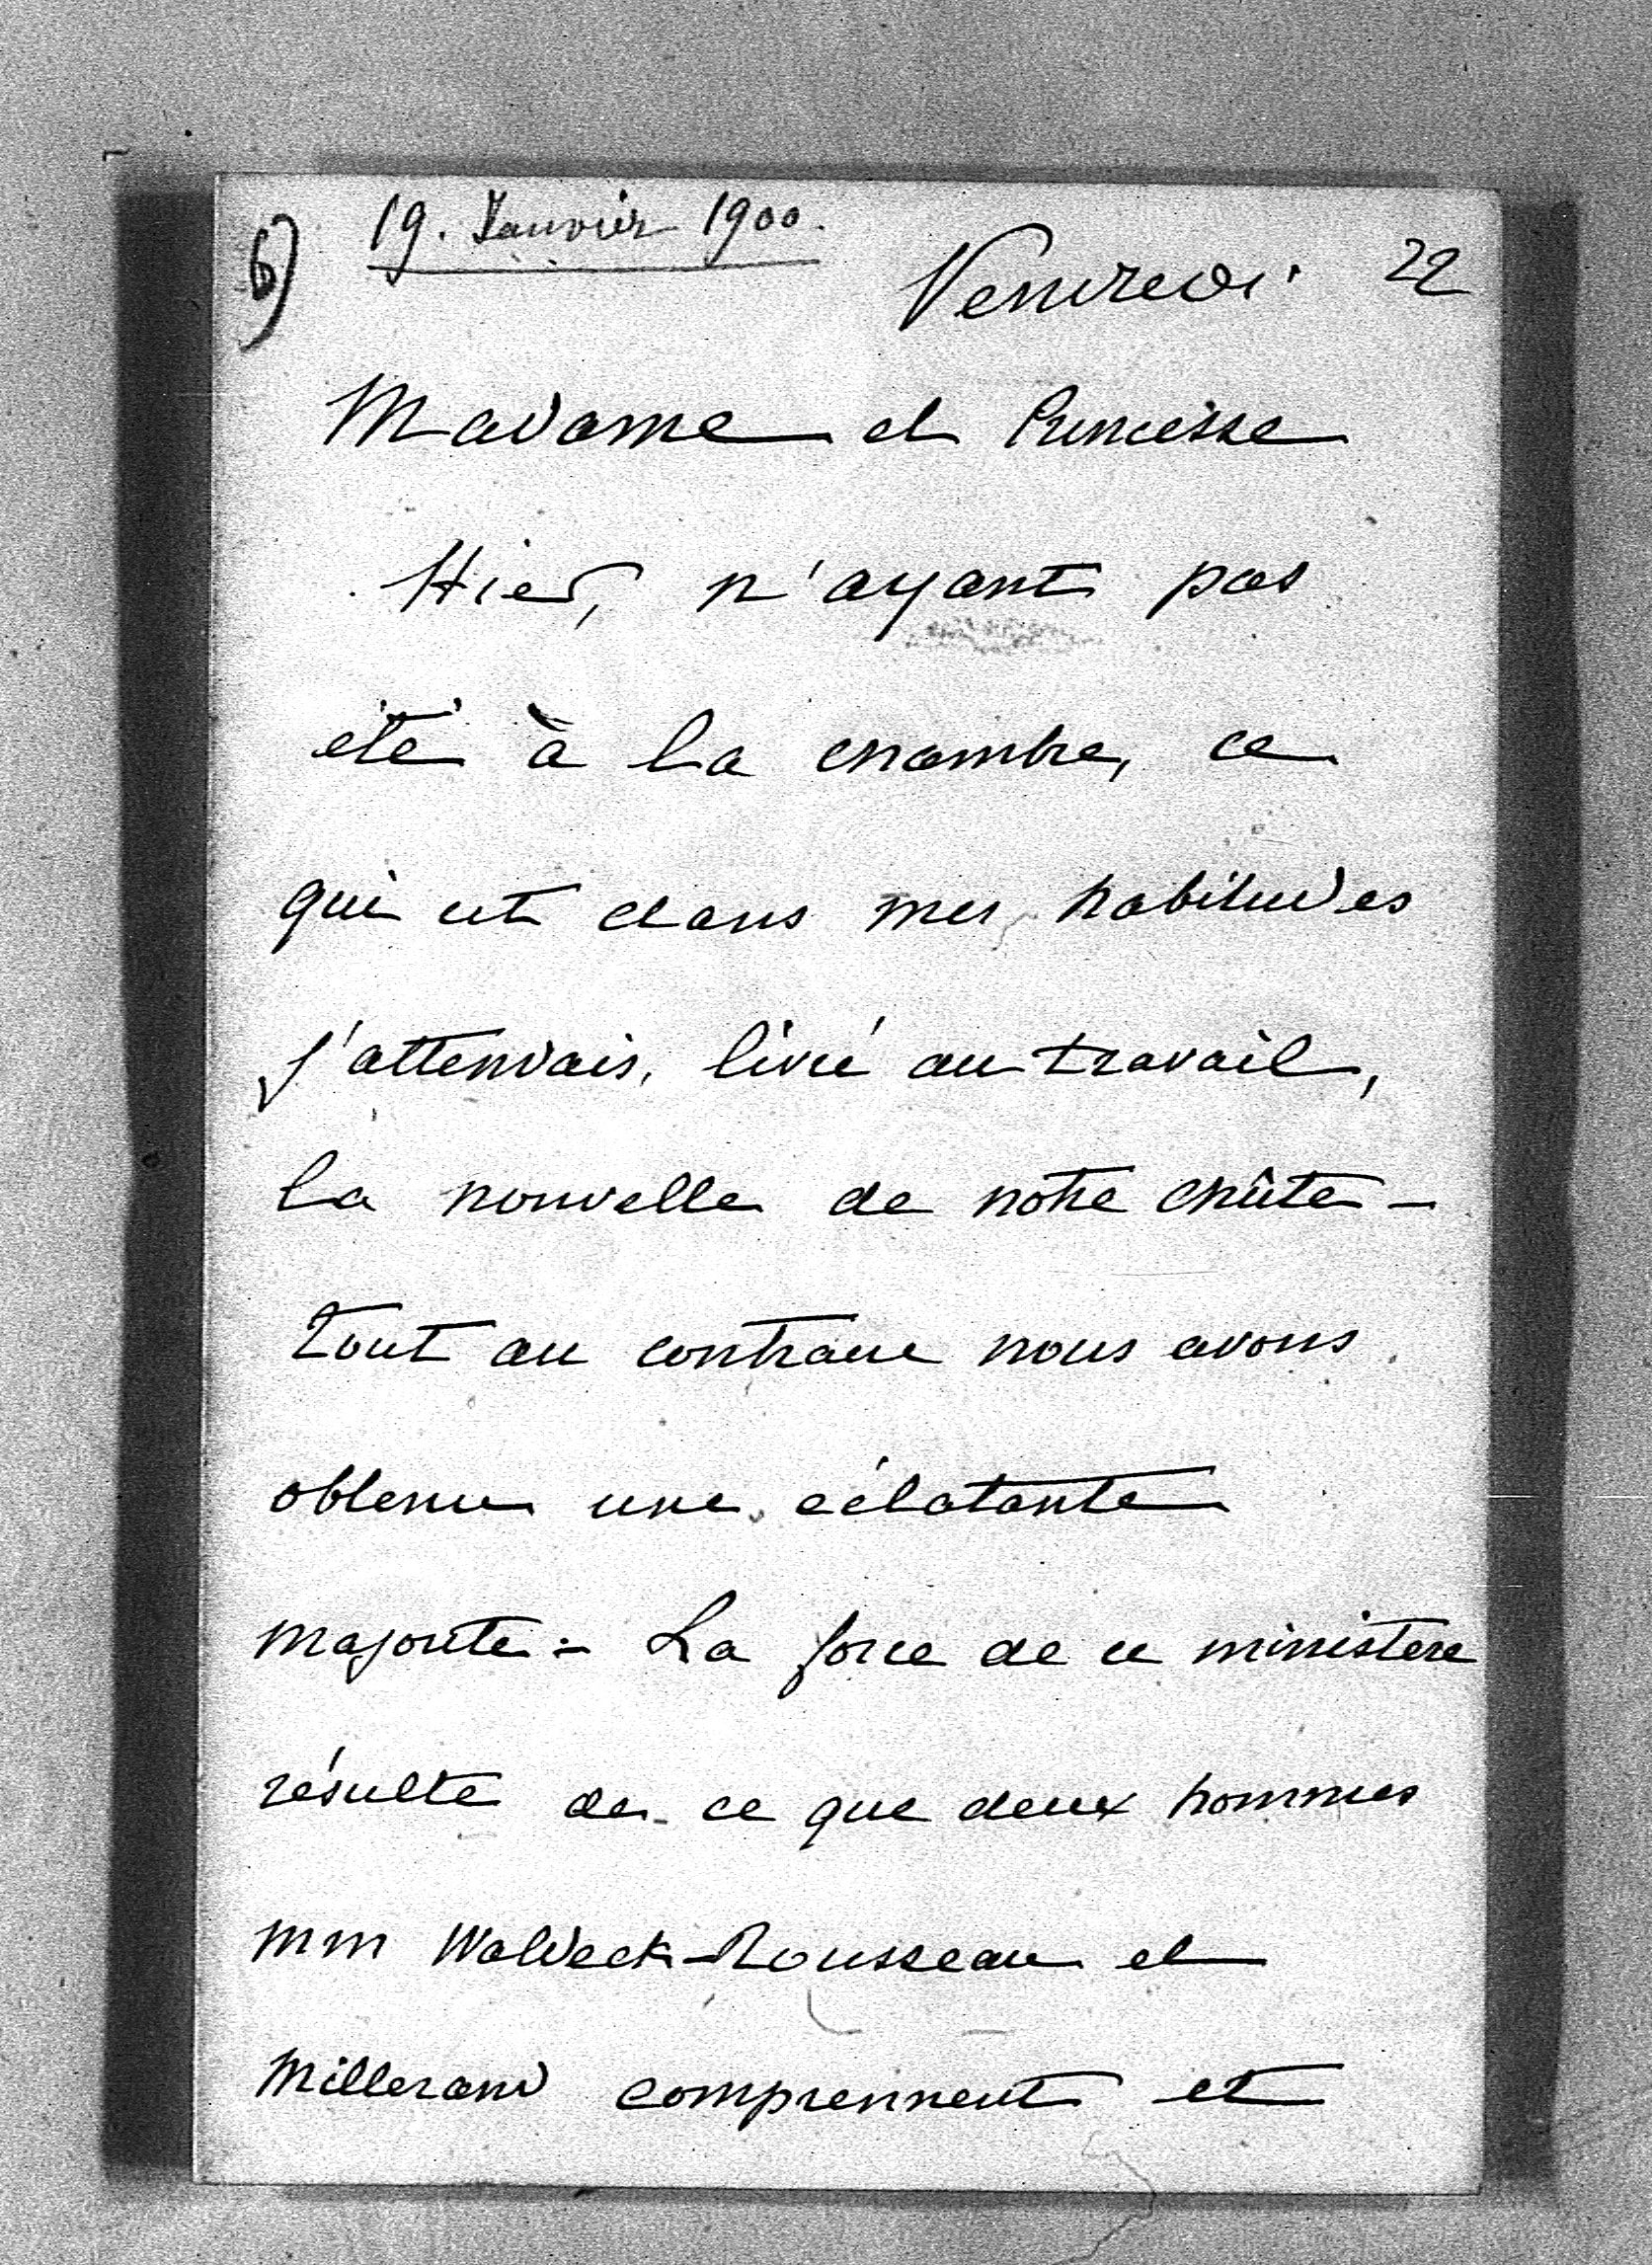 6) 19. Janvier 1900.
Vendredi 22
Madame et Princesse
Hier, n'ayant pas
été à la chambre, ce
qui est dans mes habitudes
j'attendais, livré au travail,
la nouvelle de notre chûte -
Tout au contraire nous avons
obtenu une éclatante
majorité - La force de ce ministère
résulte de ce que deux hommes
MM Waldeck-Rousseau et
Millerand comprennent et